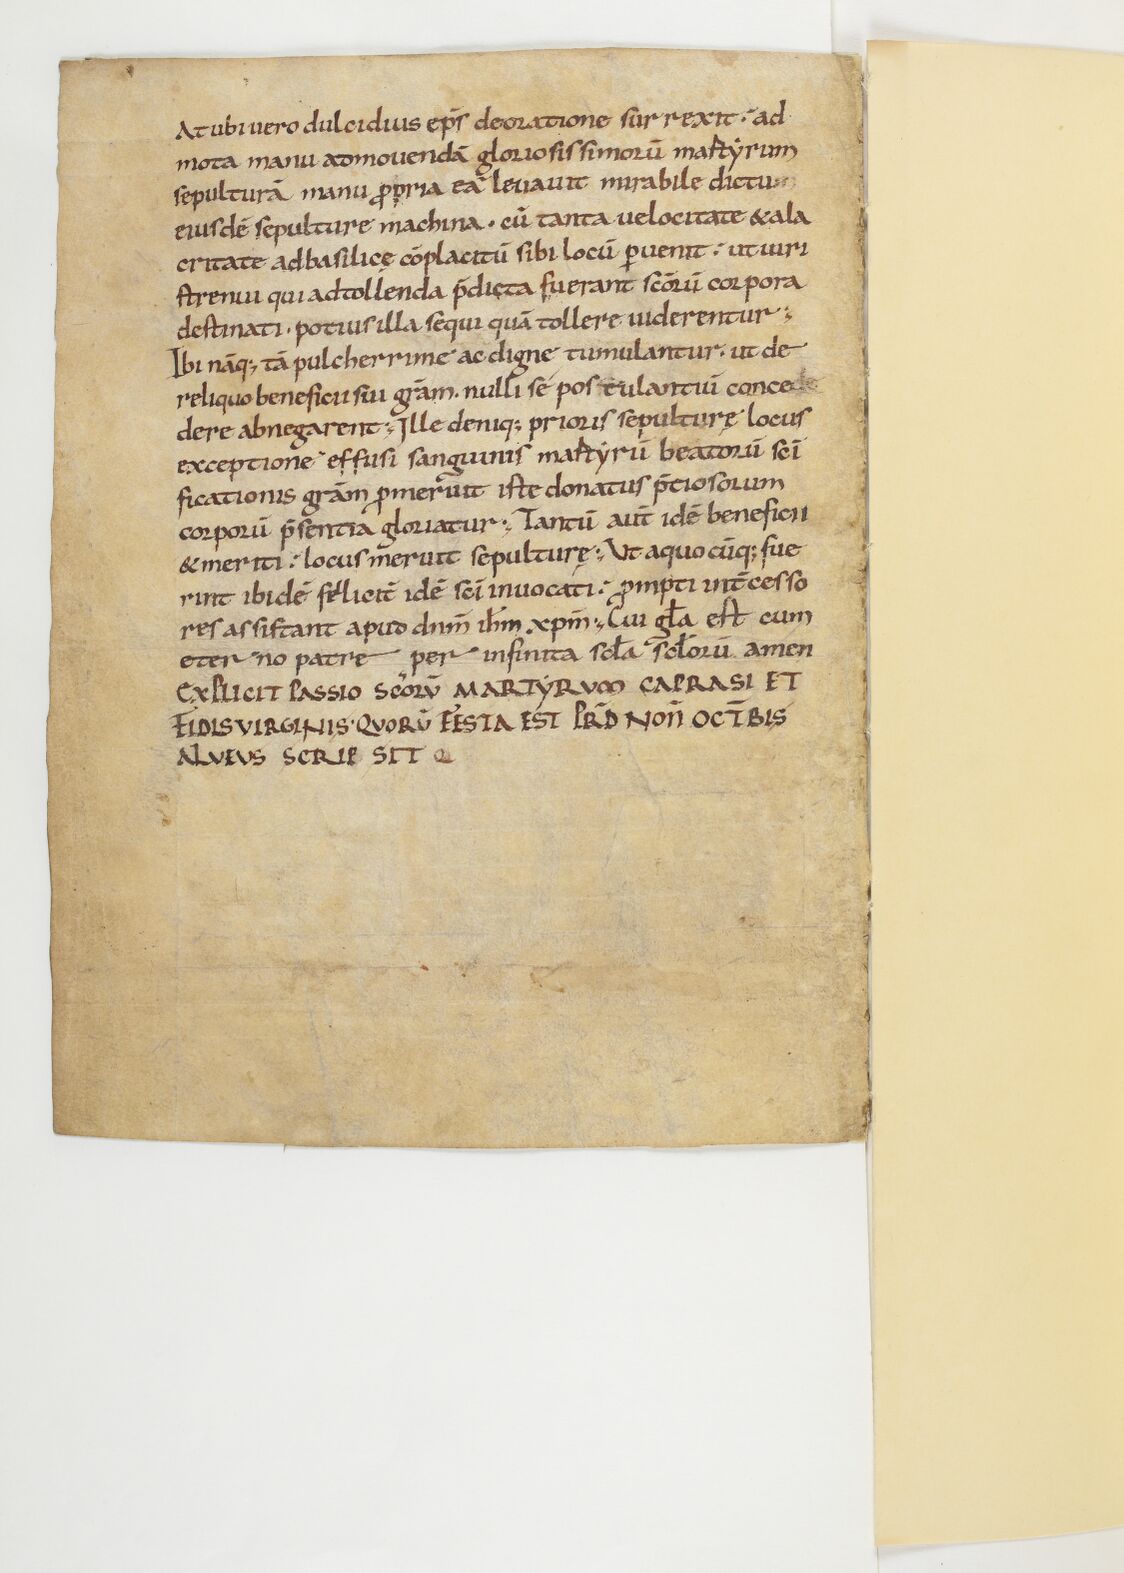 At ubi uero dulcidius ep̄s deoratione surrexit · ad
mota manu admouendā gloriosissimorū martẏrum
sepulturā manu ꝓpria eā leuauit mirabile dictum
eiusdē sepulture machina · cū tanta uelocitate & ala
critate adbasilicę cōplacitū sibi locū ꝑuenit : ut uiri
strenui qui adtollenda p̄dicta fuerant scōrū corpora
destinati · potius illa sequi quā tollere uiderentur ;
Ibi nāq; tā pulcherrime ac digne tumulantur · ut de
reliquo beneficii sui grām · nulli se postulantiū conce
dere abnegarent ; Ille deniq; prioris sepulturę locus
exceptione effusi sanguinis martẏrū beatorū sc̄i
ficationis grām ꝓmeruit iste donatus p̄ciosorum
corporū p̄sentia gloriatur ; Tantū aut̄ idē beneficii
& meriti : locus meruit sepulturę ; Ut aquocūq; fue
rint ibidē felicit̄ idē sc̄i inuocati : ꝓmpti int̄cesso
res assistant apud dnm̄ ihm̄ xpm̄ ; Cui gła est cum
eterno patre per infinita scła scłorū amen
EXPLICIT PASSIO SCŌRŪ MARTẎRUM CAPRASI ET
FIDIS VIRGINIS · QUORŪ FESTA EST PRĪD NON̄ OCT̄BIS
ALUEUS SCRIPSIT